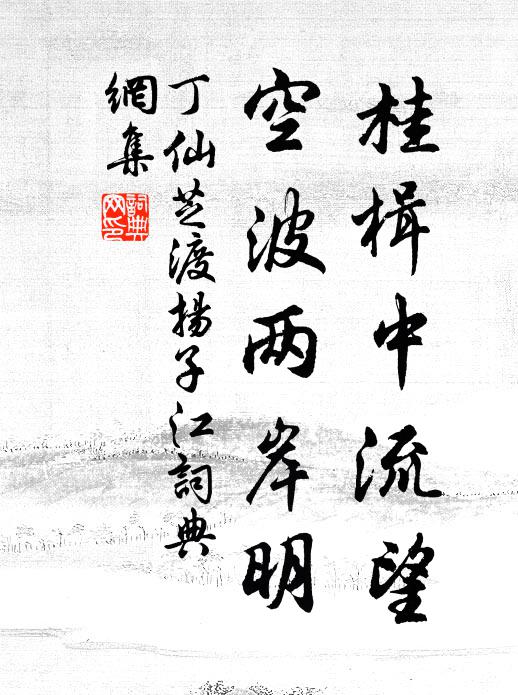 桂楫中流望
空波两岸明
丁仙芝渡揚子江詞典
網集
詞典
网印